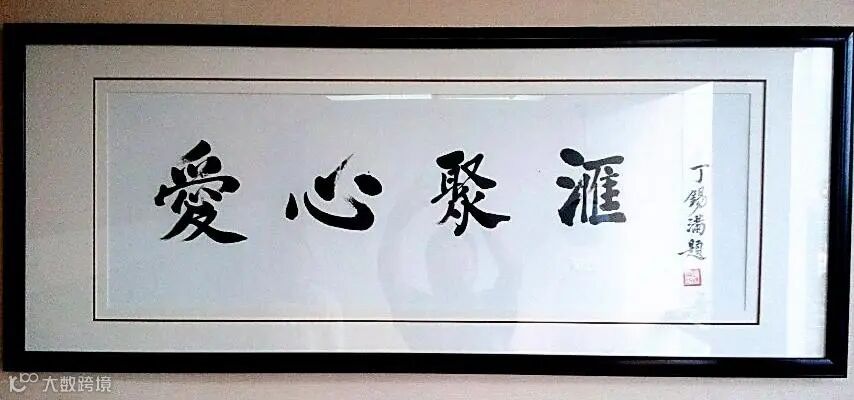 愛心聚滙
丁錫滿題
大数跨境